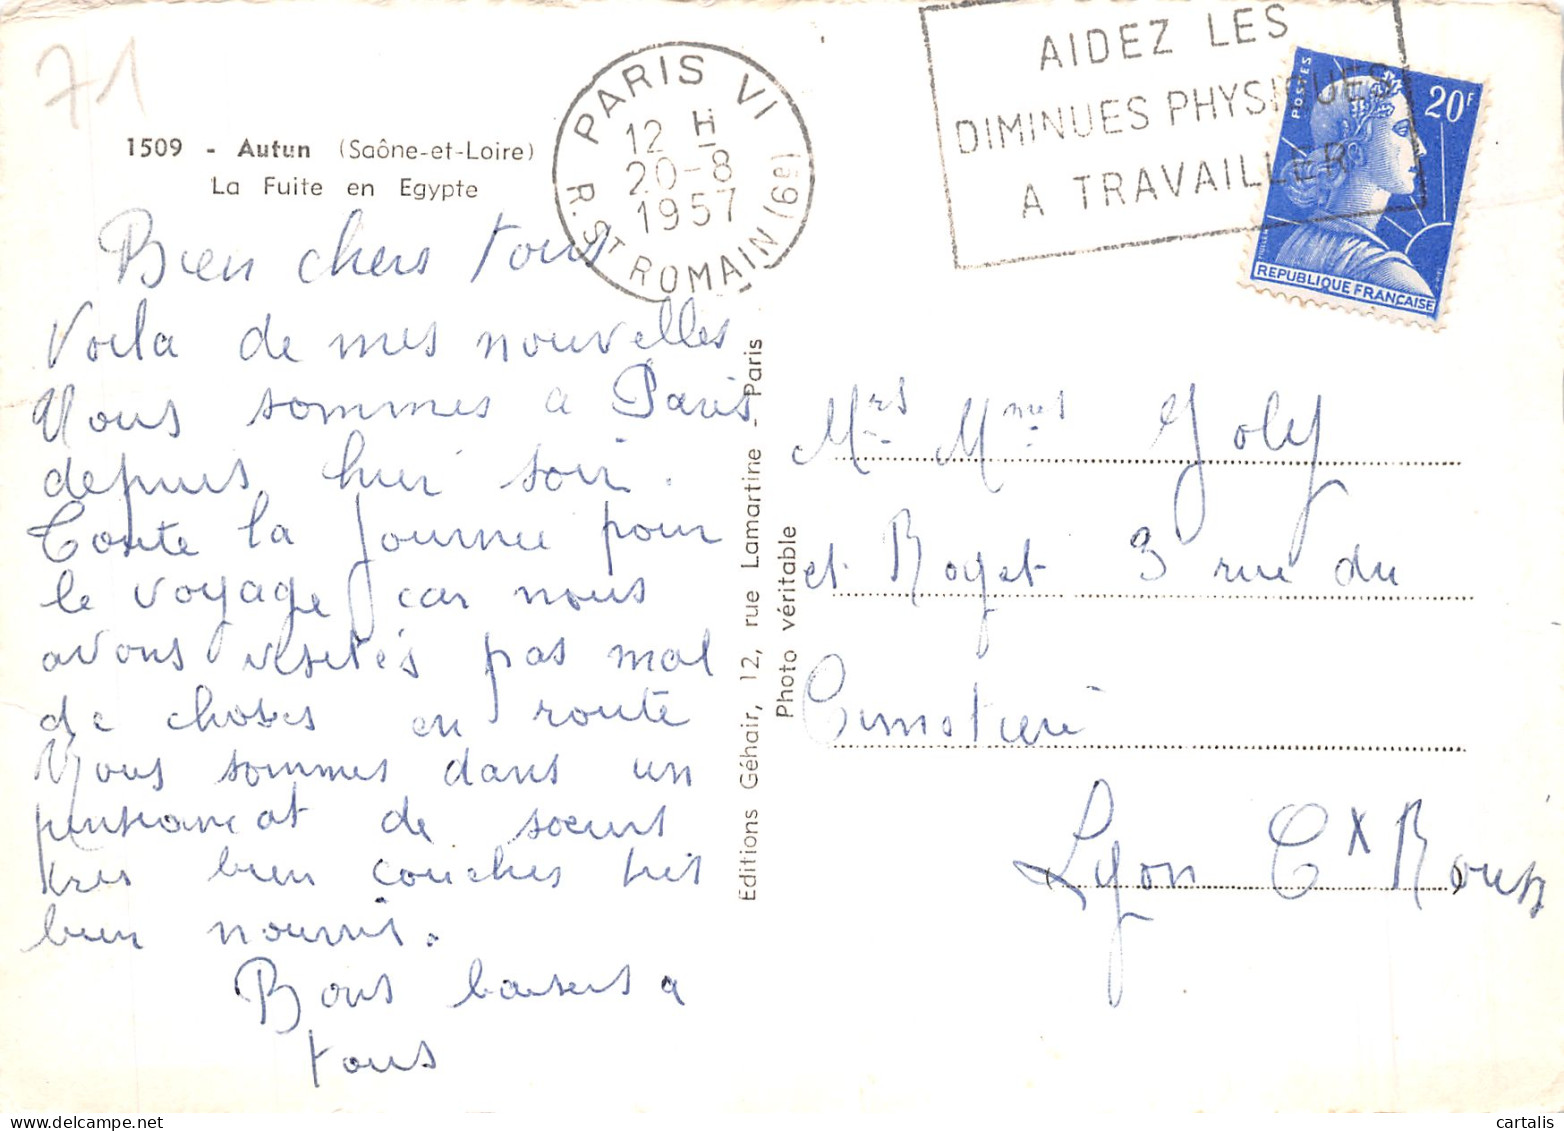 71
1509 - Autun (Saône-et-Loire)
La Fuite en Egypte
PARIS VI
12 H
20-8
1957
R. ST ROMAIN (6e)
AIDEZ LES
DIMINUES PHYSIQUES
A TRAVAILLER
POSTES
20F
REPUBLIQUE FRANÇAISE
Bien chers tous
Voila de mes nouvelles
Nous sommes a Paris
depuis hier soir.
Toute la journee pour
le voyage car nous
avons visités pas mal
de choses en route
Nous sommes dans un
pensionnat de soeurs
tres bien couches tres
bien nourris.
Bons baisers a
tous
Editions Géhair, 12, rue Lamartine - Paris
Photo véritable
Mrs Mmes Joly
et Rayet 3 rue du
Cimetiere
Lyon Cx Rouss
cartalis